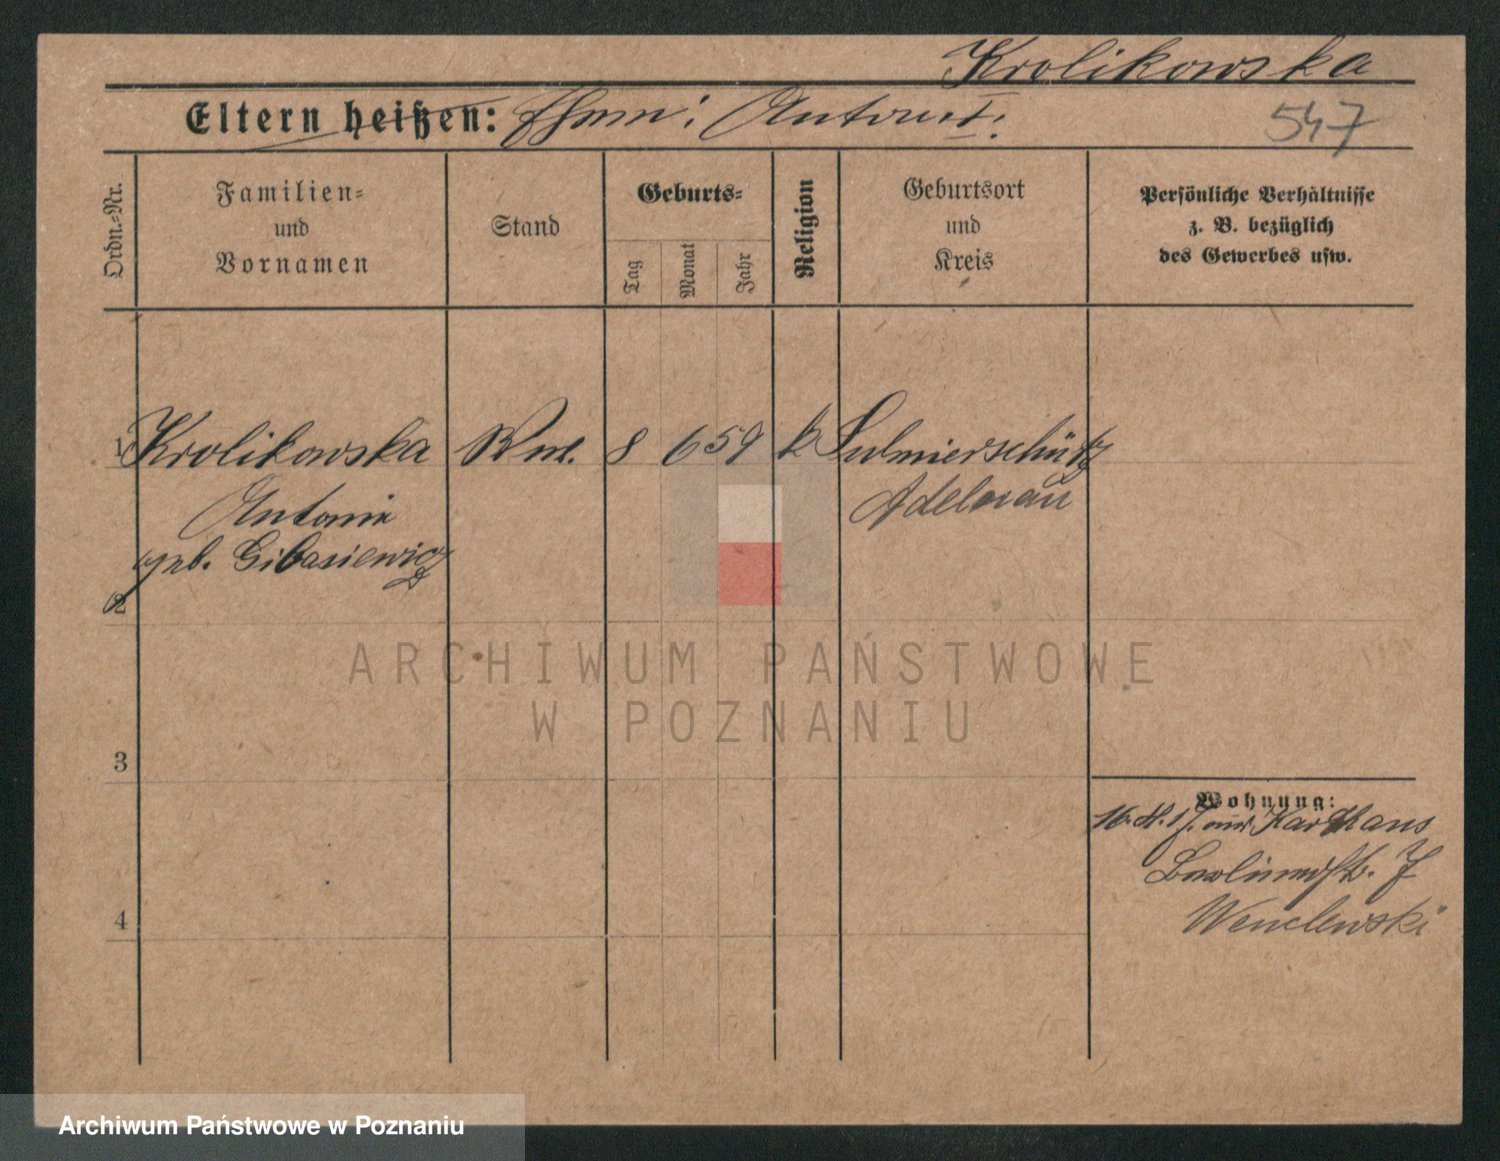 Krolikowska
Eltern heißen: Ehem: Anton †.
547
Ordn.-Nr.
Familien-
und
Vornamen
Stand
Geburts-
Tag
Monat
Jahr
Religion
Geburtsort
und
Kreis
Persönliche Verhältnisse
z. B. bezüglich
des Gewerbes usw.
1 Krolikowska Ww. 8 6 59 k Sulmierschütz
Antonie Adelnau
geb. Gibasiewicz
2
3
4
Wohnung:
16. 4. 17. aus
Berlinerstr. 7
Wenclewski
ARCHIWUM PAŃSTWOWE
W POZNANIU
Archiwum Państwowe w Poznaniu